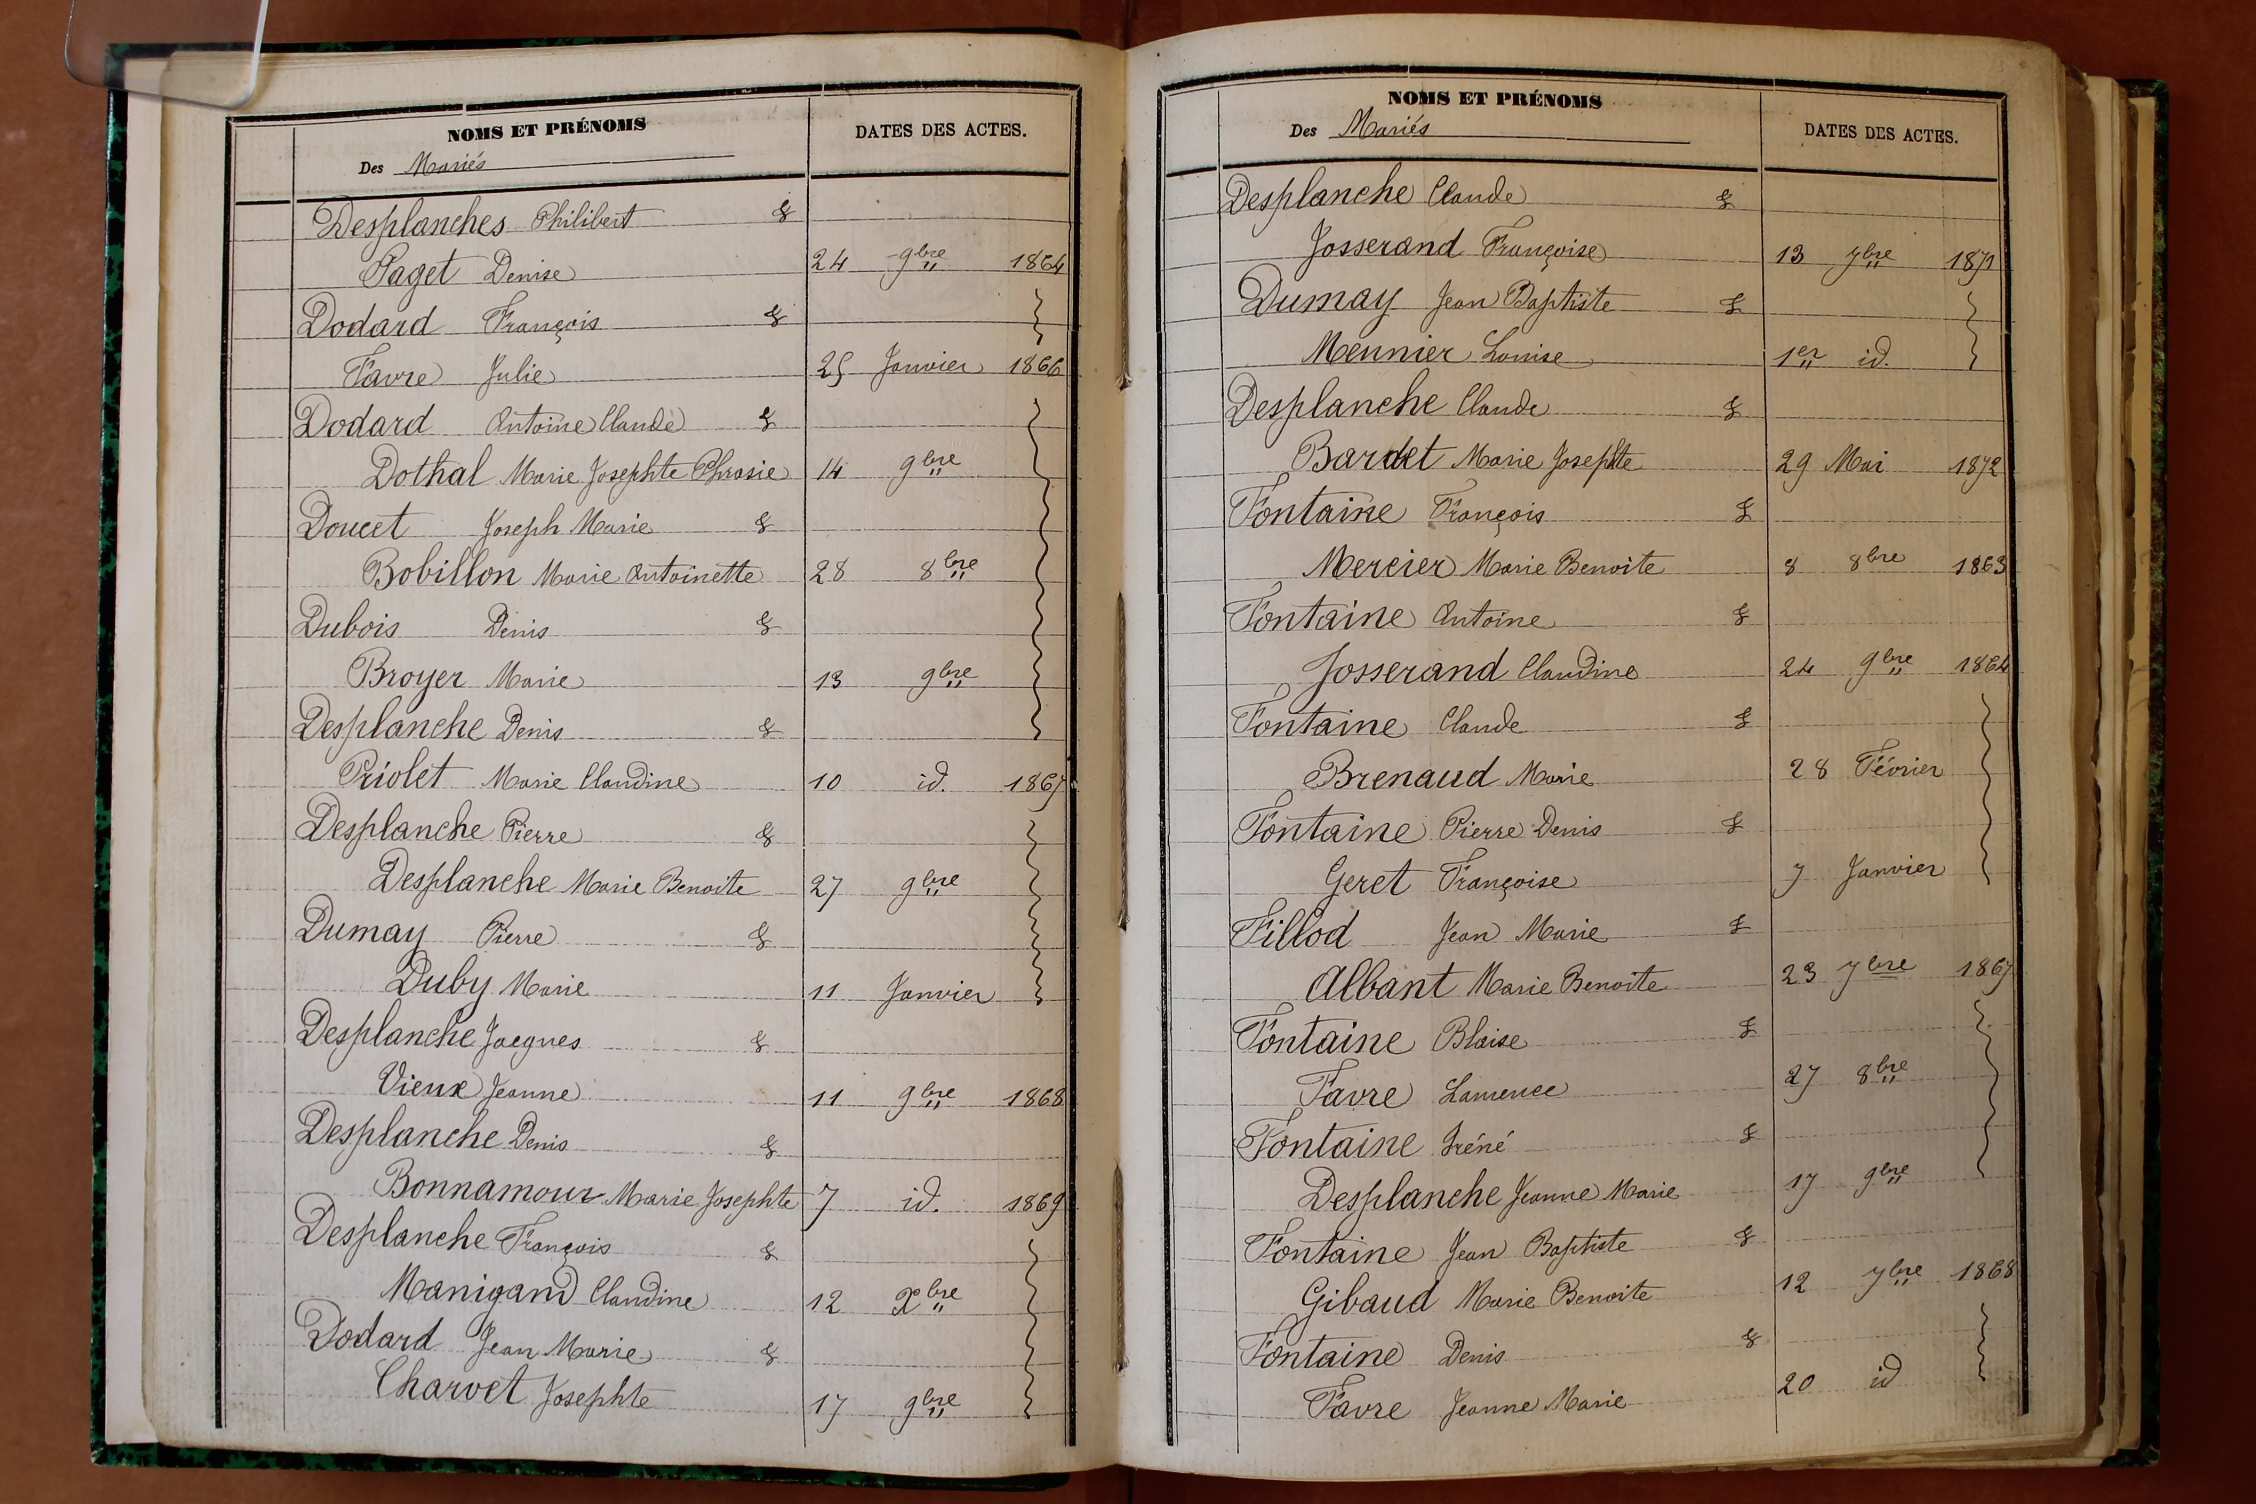 NOMS ET PRÉNOMS
Des Mariés
DATES DES ACTES.
Desplanches Philibert &
Paget Denise 24 9bre 1864
Dodard François &
Favre Julie 25 Janvier 1866
Dodard Antoine Claude &
Dothal Marie Josephte Phrasie 14 9bre
Doucet Joseph Marie &
Bobillon Marie Antoinette 28 8bre
Dubois Denis &
Broyer Marie 13 9bre
Desplanche Denis &
Priolet Marie Claudine 10 id. 1867
Desplanche Pierre &
Desplanche Marie Benoite 27 9bre
Dumay Pierre &
Duby Marie 11 Janvier
Desplanche Jacques &
Vieux Jeanne 11 9bre 1868
Desplanche Denis &
Bonnamour Marie Josephte 7 id. 1869
Desplanche François &
Manigand Claudine 12 Xbre
Dodard Jean Marie &
Charvet Josephte 17 9bre
NOMS ET PRÉNOMS
Des Mariés
DATES DES ACTES.
Desplanche Claude &
Josserand Françoise 13 7bre 1871
Dumay Jean Baptiste &
Meunier Louise 1er id.
Desplanche Claude &
Bardet Marie Josephte 29 Mai 1872
Fontaine François &
Mercier Marie Benoite 8 8bre 1863
Fontaine Antoine &
Josserand Claudine 24 9bre 1864
Fontaine Claude &
Brenaud Marie 28 Février
Fontaine Pierre Denis &
Geret Françoise 7 Janvier
Fillod Jean Marie &
Albant Marie Benoite 23 7bre 1867
Fontaine Blaise &
Favre Laurence 27 8bre
Fontaine Iréné &
Desplanche Jeanne Marie 17 9bre
Fontaine Jean Baptiste &
Gibaud Marie Benoite 12 7bre 1868
Fontaine Denis &
Favre Jeanne Marie 20 id